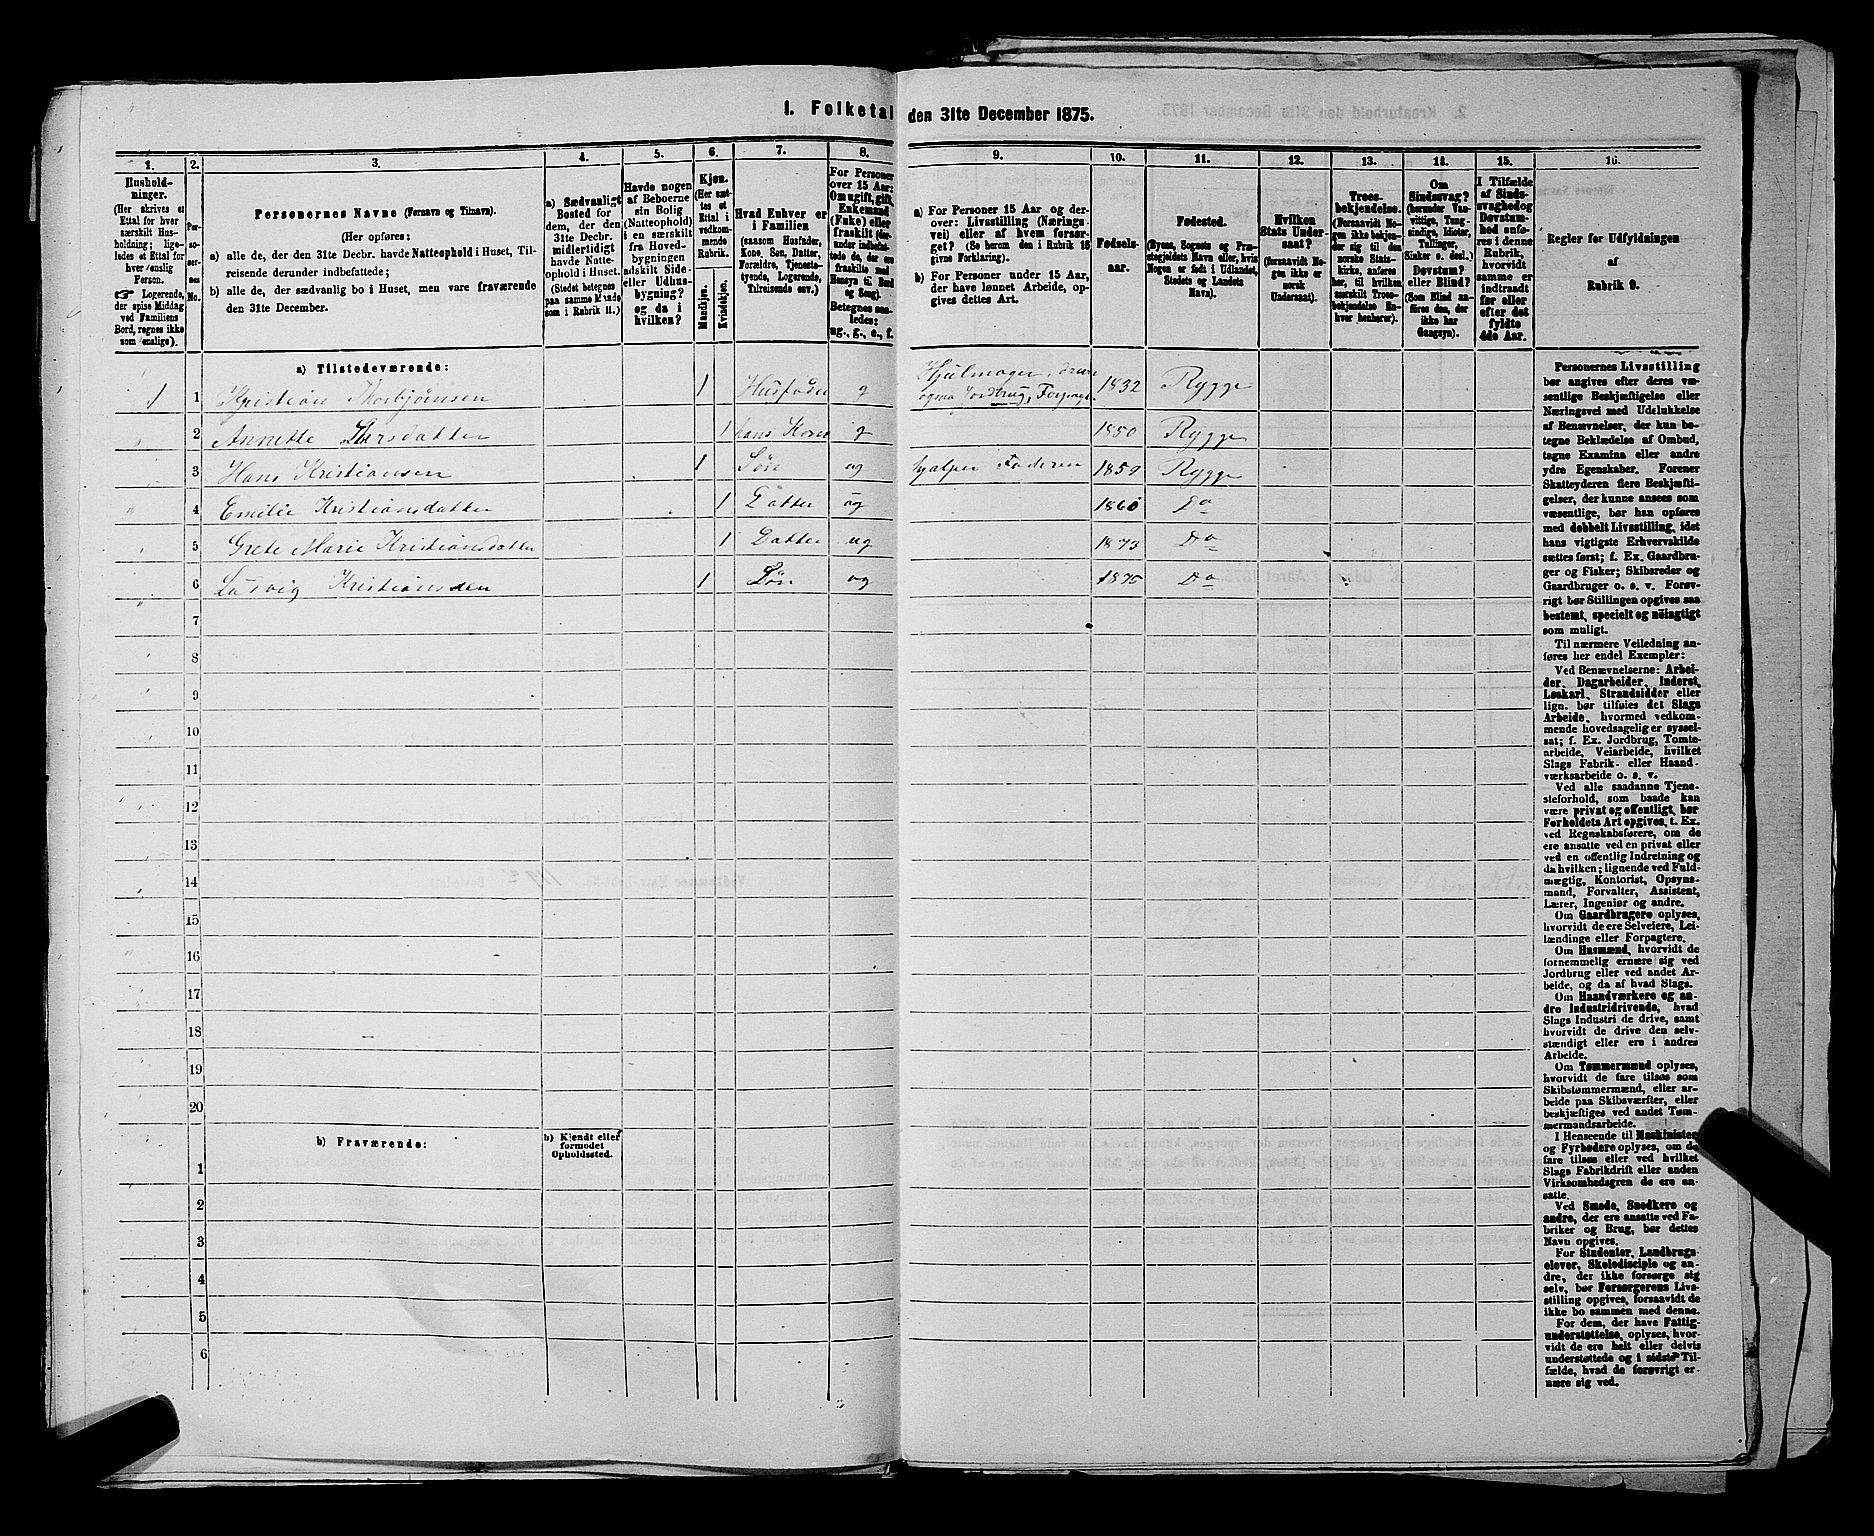 I. Folketal den 31te December 1875.
1. 2. 3. 4. 5. 6. 7. 8. 9. 10. 11. 12. 13. 14. 15. 16.
Hushold-
ninger.
(Her skrives et
Ettal for hver
særskilt Hus-
holdning; lige-
ledes et Ettal for
hver enslig
Person.
☞ Logerende,
der spise Middag
ved Familiens
Bord, regnes ikke
som enslige).
Per-
so-
ner-
nes
No.
Personernes Navne (Fornavn og Tilnavn).
(Her opføres:
a) alle de, der den 31te Decbr. havde Natteophold i Huset, Til-
reisende derunder indbefattede;
b) alle de, der sædvanlig bo i Huset, men vare fraværende
den 31te December.
a) Sædvanligt
Bosted for
dem, der den
31te Decbr.
midlertidigt
havde Natte-
ophold i Huset.
(Stedet betegnes
paa samme Maade
som i Rubrik 11.)
Havde nogen
af Beboerne
sin Bolig
(Natteophold)
i en særskilt
fra Hoved-
bygningen
adskilt Side-
eller Udhus-
bygning?
og da i
hvilken?
Kjøn.
(Her sæt-
tes et
Ettal i
vedkom-
mende
Rubrik.
Mandkjøn.
Kvindekjøn.
Hvad Enhver er
i Familien
(saasom Husfader,
Kone, Søn, Datter,
Forældre, Tjeneste-
tyende, Logerende,
Tilreisende osv.)
For Personer
over 15 Aar:
Om ugift, gift,
Enkemand
(Enke) eller
fraskilt (her-
under indbefat-
tede de, der ere
fraskilte med
Hensyn til Bord
og Seng).
Betegnes saa-
ledes:
ug., g., e., f.
a) For Personer 15 Aar og der-
over: Livsstilling (Nærings-
vei) eller af hvem forsør-
get? (Se herom den i Rubrik 16
givne Forklaring).
b) For Personer under 15 Aar,
der have lønnet Arbeide, op-
gives dettes Art.
Fødsels-
aar.
Fødested.
(Byens, Sognets og Præ-
stegjeldets Navn eller, hvis
Nogen er født i Udlandet,
Stedets og Landets
Navn).
Hvilken
Stats Under-
saat?
(forsaavidt No-
gen ikke er
norsk
Undersaat).
Troes-
bekjendelse.
(Forsaavidt No-
gen ikke bekjen-
der sig til den
norske Stats-
kirke, anføres
her, til hvilket
særskilt Troes-
bekjendelse En-
hver henhører).
Om
Sindssvag?
(herunder Van-
vittige, Tung-
sindige, Idioter,
Tullinger,
Sinker o. desl.)
Døvstum?
eller Blind?
(Som Blind an-
føres den, der
ikke har
Gangsyn).
I Tilfælde
af Sinds-
svaghed og
Døvstum-
hed anfø-
res i denne
Rubrik,
hvorvidt
samme er
indtraadt
før eller
efter det
fyldte
4de Aar.
Regler for Udfyldningen
af
Rubrik 9.
a) Tilstedeværende:
1 1 Kristian Thorbjørnsen 1 Husfader g Hjulmager,
Jordbrug, Forpagt. 1832 Rygge
2 Annette Larsdatter 1 hans Kone g 1850 Rygge
3 Hans Kristiansen 1 Søn ug hjælper Faderen 1859 Rygge
4 Emilie Kristiansdatter 1 Datter ug 1860 Do
5 Grete Marie Kristiansdatter 1 Datter ug 1873 Do
6 Ludvig Kristiansen 1 Søn ug 1875 Do
7
8
9
10
11
12
13
14
15
16
17
18
19
20
b) Fraværende:
b) Kjendt eller
formodet
Opholdssted.
1
2
3
4
5
6
Personernes Livsstilling
bør angives efter deres væ-
sentlige Beskjæftigelse eller
Næringsvei med Udelukkelse
af Benævnelser, der kun be-
tegne Beklædelse af Ombud,
tagne Examina eller andre
ydre Egenskaber. Forener
Skatteyderen flere Beskjæfti-
gelser, der kunne ansees som
væsentlige, bør han opføres
med dobbelt Livsstilling, idet
hans vigtigste Erhvervskilde
sættes først; f. Ex. Gaardbru-
ger og Fisker; Skibsreder og
Gaardbruger o. s. v. Forøv-
rigt bør Stillingen opgives saa
bestemt, specielt og nöiagtigt
som muligt.
Til nærmere Veiledning an-
føres her endel Exempler:
Ved Benævnelserne: Arbei-
der, Dagarbeider, Inderst,
Løskarl, Strandsidder eller
lign. bør tilføies det Slags
Arbeide, hvormed vedkom-
mende hovedsagelig er syssel-
sat; f. Ex. Jordbrug, Tomte-
arbeide, Veiarbeide, hvilket
Slags Fabrik- eller Haand-
værksarbeide o. s. v.
Ved alle saadanne Tjene-
steforhold, som baade kan
være privat og offentligt, bør
Forholdets Art opgives, t. Ex.
ved Regnskabsførere, om de
ere ansatte ved en privat eller
ved en offentlig Indretning og
da hvilken; lignende ved Fuld-
mægtig, Kontorist, Opsyns-
mand, Forvalter, Assistent,
Lærer, Ingeniør og andre.
Om Gaardbrugere oplyses,
hvorvidt de ere Selveiere, Lei-
lændinge eller Forpagtere.
Om Husmænd, hvorvidt de
fornemmelig ernære sig ved
Jordbrug eller ved andet Ar-
beide, og da af hvad Slags.
Om Haandværkere og an-
dre Industridrivende, hvad
Slags Industri de drive, samt
hvorvidt de drive den selv-
stændigt eller ere i andres
Arbeide.
Om Tømmermænd oplyses,
hvorvidt de fare tilsøs som
Skibstømmermænd, eller ar-
beide paa Skibsværfter, eller
beskjæftiges ved andet Tøm-
mermandsarbeide.
I Henseende til Maskinister
og Fyrbødere oplyses, om de
fare tilsøs eller ved hvilket
Slags Fabrikdrift eller anden
Virksomhedsgren de ere an-
satte.
Ved Smede, Snedkere og
andre, der ere ansatte ved Fa-
briker og Brug, bør dettes
Navn opgives.
For Studenter, Landbrugs-
elever, Skoledisciple og an-
dre, der ikke forsørge sig
selv, bør Forsørgerens Livs-
stilling opgives, forsaavidt de
ikke bo sammen med denne.
For dem, der have Fattig-
understøttelse, oplyses, hvor-
vidt de ere helt eller delvis
understøttede og i sidste Til-
fælde, hvad de forøvrigt er-
nære sig ved.